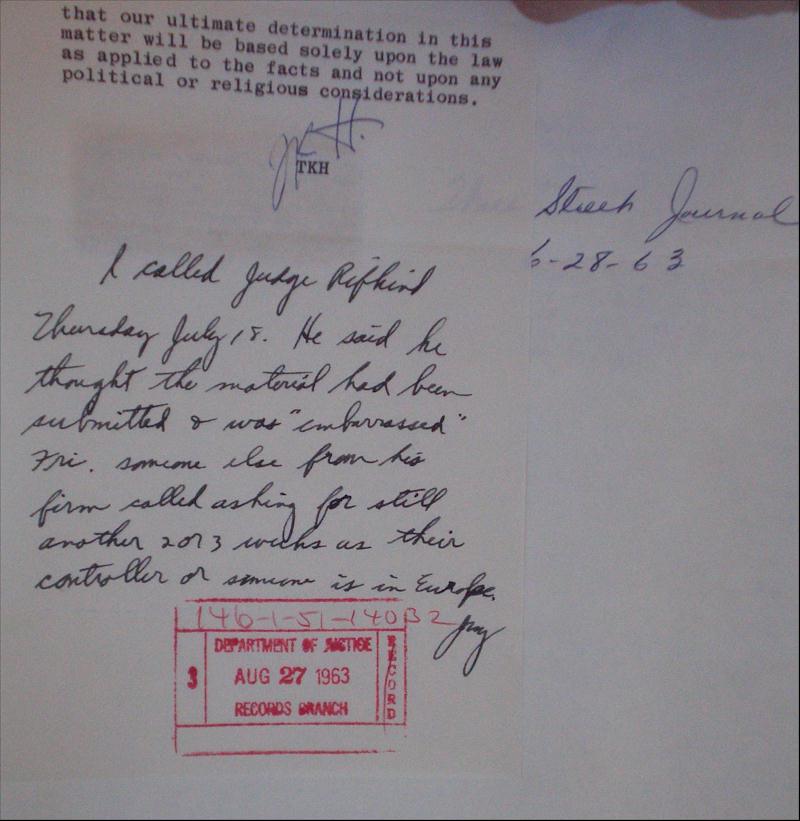 that our ultimate determination in this
matter will be based solely upon the law
as applied to the facts and not upon any
political or religious considerations.
TKH
Street Journal
6-28-63
I called Judge Rifkind
Thursday July 18. He said he
thought the material had been
submitted & was "embarrassed"
Fri. someone else from his
firm called asking for still
another 2 or 3 weeks as their
controller or someone is in Europe.
146-1-51-140B2
DEPARTMENT OF JUSTICE
3 AUG 27 1963
RECORDS BRANCH
RECORD